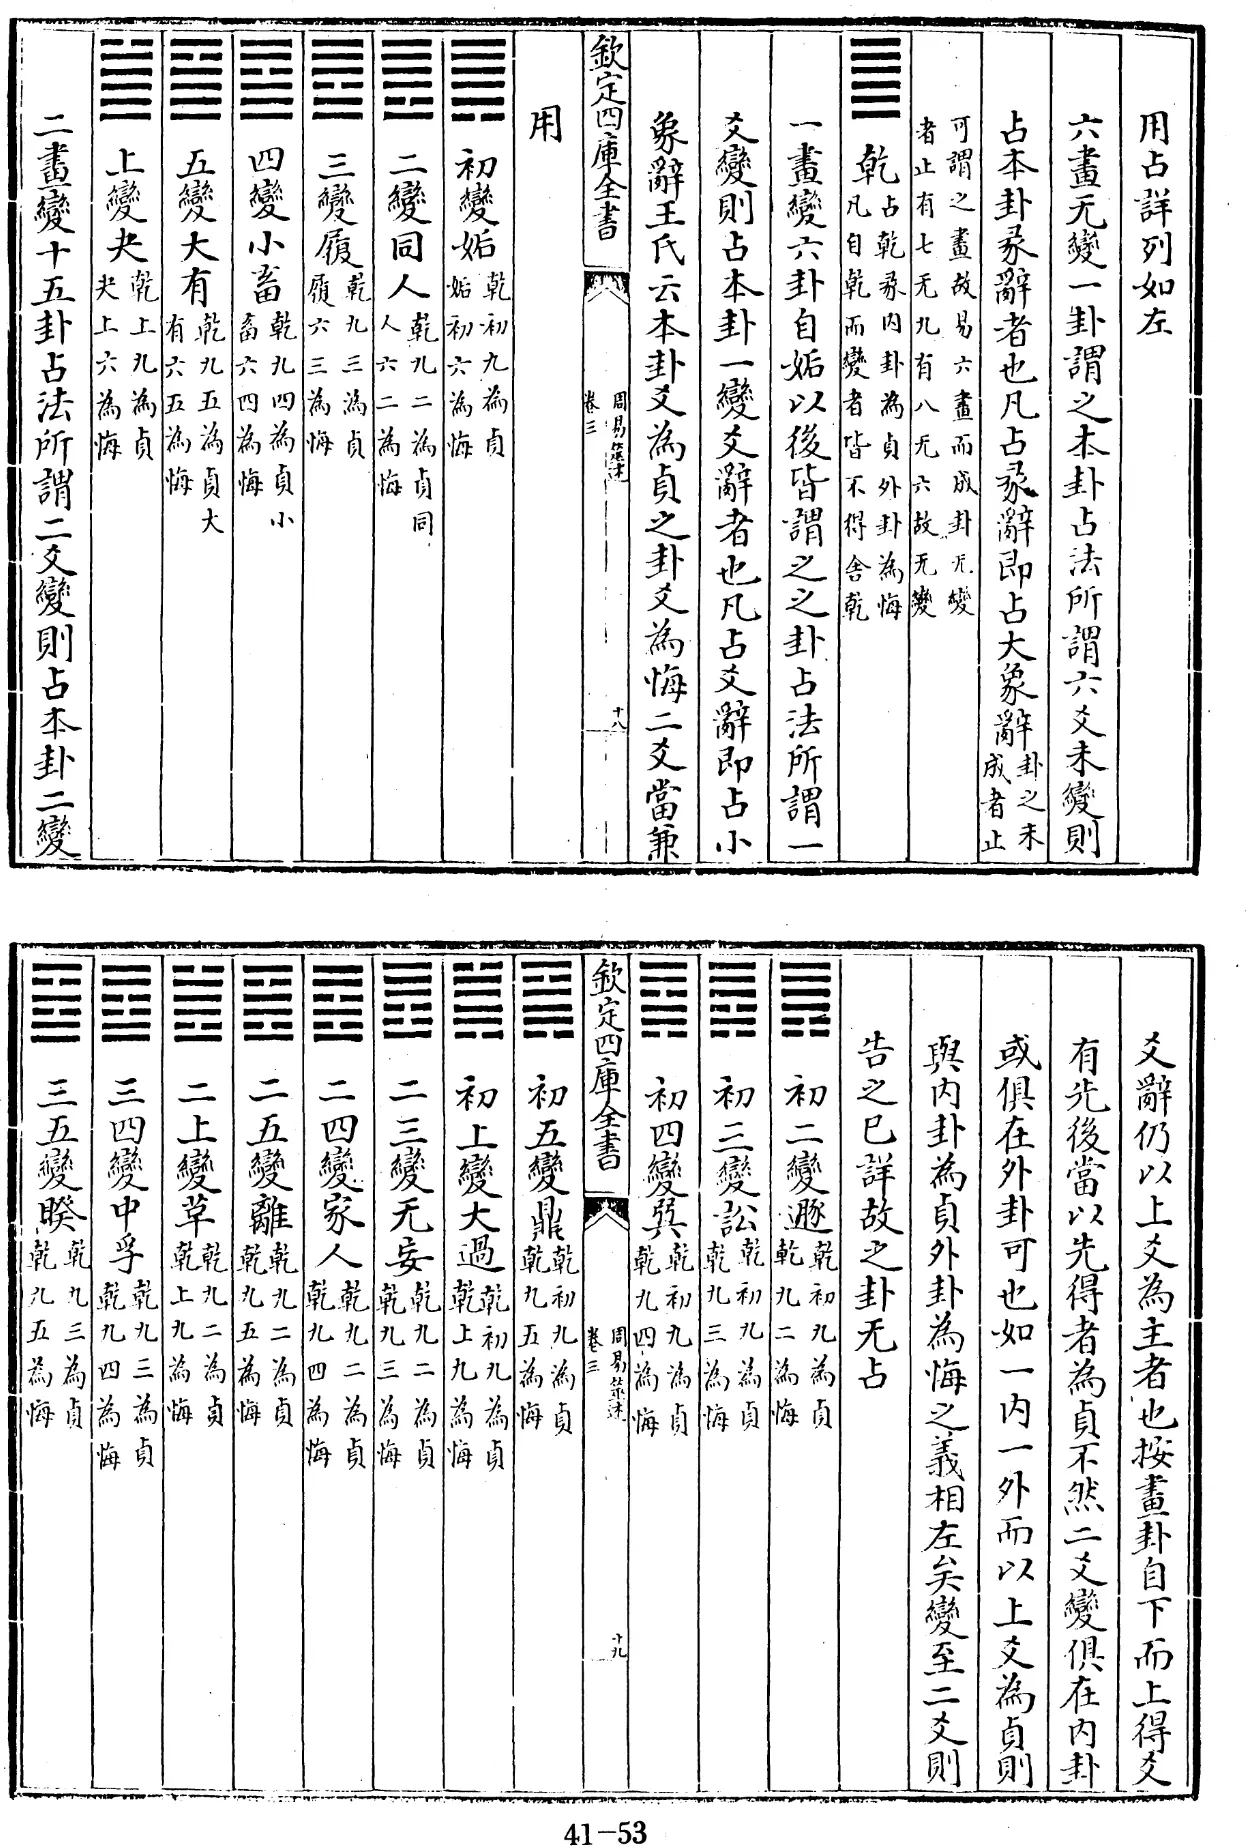 用占詳列如左
六畫无變一卦謂之本卦占法所謂六爻未變則
占本卦彖辭者也凡占彖辭即占大象辭卦之未成者止
可謂之畫故易六畫而成卦无變者止有七无九有八无六故无變
乾占乾彖内卦為貞外卦為悔凡自乾而變者皆不得舍乾
一畫變六卦自姤以後皆謂之之卦占法所謂一
爻變則占本卦一變爻辭者也凡占爻辭即占小
象辭王氏云本卦爻為貞之卦爻為悔二爻當兼
用
欽定四庫全書
周易筮述
卷三
十八
初變姤乾初九為貞姤初六為悔
二變同人乾九二為貞同人六二為悔
三變履乾九三為貞履六三為悔
四變小畜乾九四為貞小畜六四為悔
五變大有乾九五為貞大有六五為悔
上變夬乾上九為貞夬上六為悔
二畫變十五卦占法所謂二爻變則占本卦二變
爻辭仍以上爻為主者也按畫卦自下而上得爻
有先後當以先得者為貞不然二爻變俱在内卦
或俱在外卦可也如一内一外而以上爻為貞則
與内卦為貞外卦為悔之義相左矣變至二爻則
告之已詳故之卦无占
初二變遯乾初九為貞乾九二為悔
初三變訟乾初九為貞乾九三為悔
初四變巽乾初九為貞乾九四為悔
欽定四庫全書
周易筮述
卷三
十九
初五變鼎乾初九為貞乾九五為悔
初上變大過乾初九為貞乾上九為悔
二三變无妄乾九二為貞乾九三為悔
二四變家人乾九二為貞乾九四為悔
二五變離乾九二為貞乾九五為悔
二上變革乾九二為貞乾上九為悔
三四變中孚乾九三為貞乾九四為悔
三五變睽乾九三為貞乾九五為悔
41-53